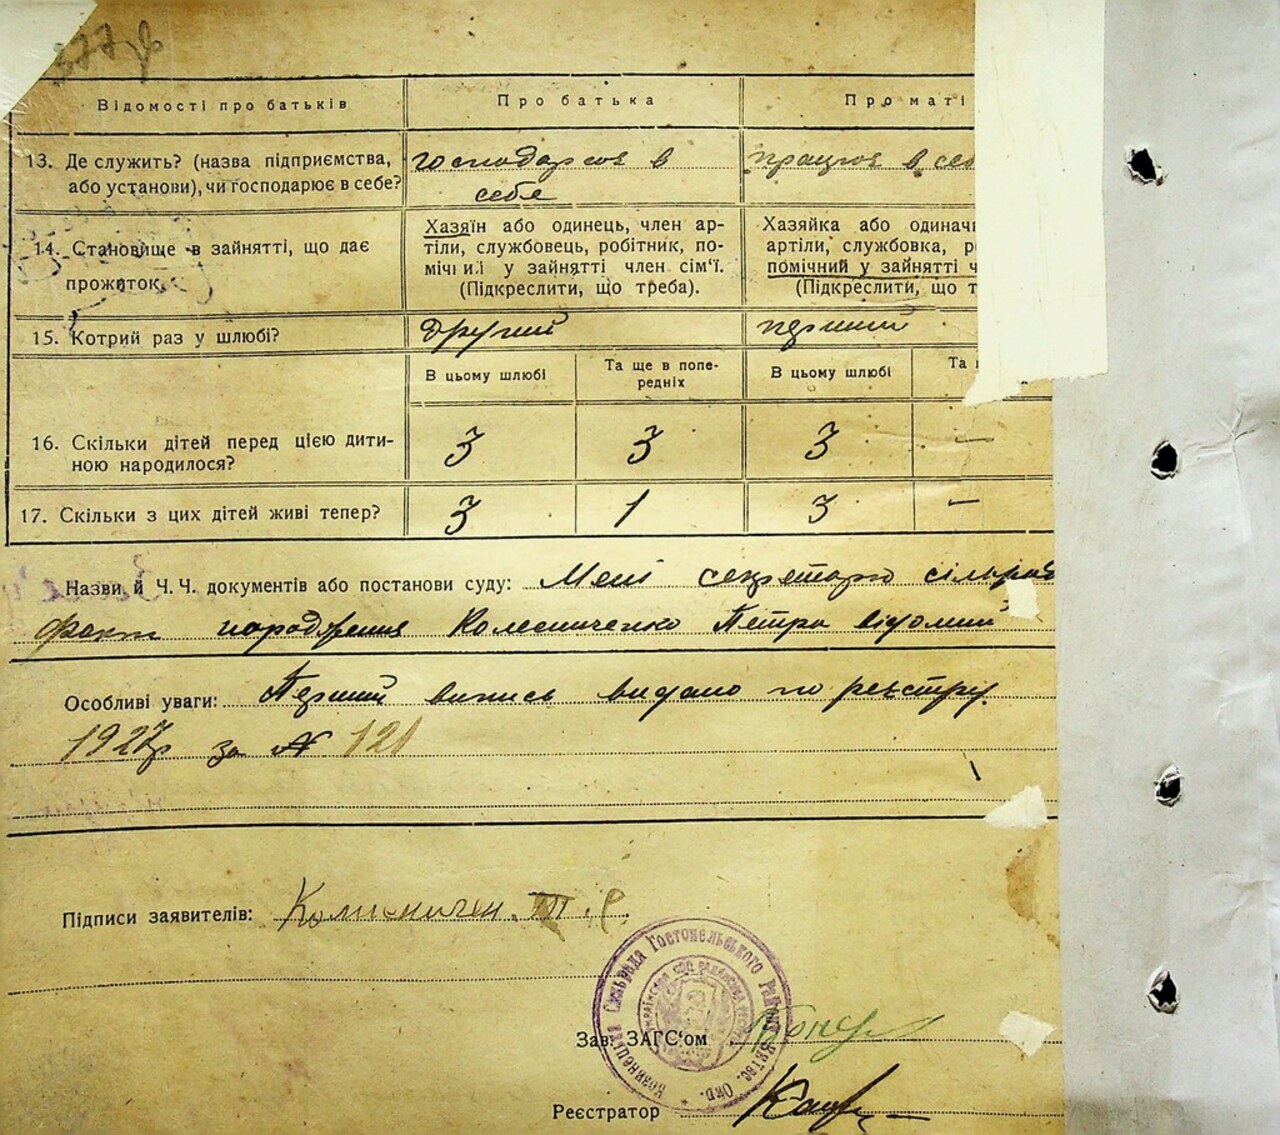 377
Відомості про батьків
Про батька
Про маті
13. Де служить? (назва підприємства,
або установи), чи господарює в себе?
господарює в
себе
працює в
14. Становище в зайнятті, що дає
прожиток.
Хазяїн або одинець, член ар-
тіли, службовець, робітник, по-
мічний у зайнятті член сім'ї.
(Підкреслити, що треба).
Хазяйка або одинач
артіли, службовка, р
помічний у зайнятті ч
(Підкреслити, що т
15. Котрий раз у шлюбі?
другий
перший
В цьому шлюбі
Та ще в попе-
редніх
В цьому шлюбі
Та
16. Скільки дітей перед цією дити-
ною народилося?
3
3
3
—
17. Скільки з цих дітей живі тепер?
3
1
3
—
Назви й Ч. Ч. документів або постанови суду: Мені секретарю сільрад
факт народження Колесниченко Петра відомий
Особливі уваги: Перший випись видано по реєстру
1927р за № 121
Підписи заявителів:
Сільрада Гостомельського Району
Окр.
Зав. ЗАГС'ом
Реєстратор